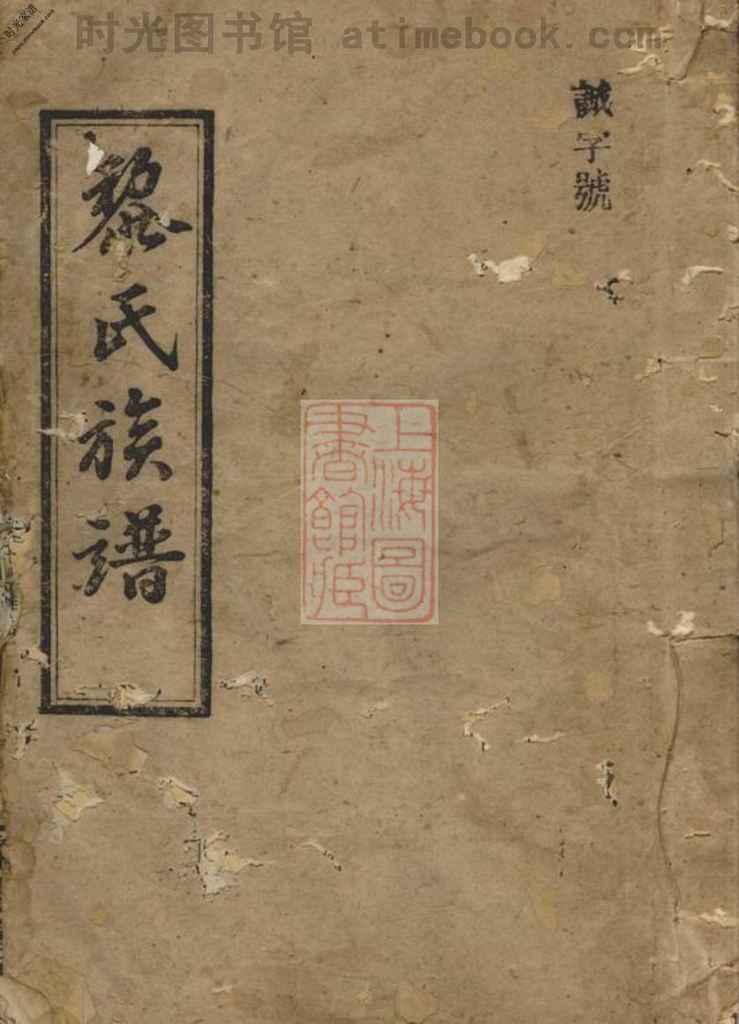 时光图书馆 atimebook.com
时光家谱
誠字號
黎氏族譜
上海圖
書館藏